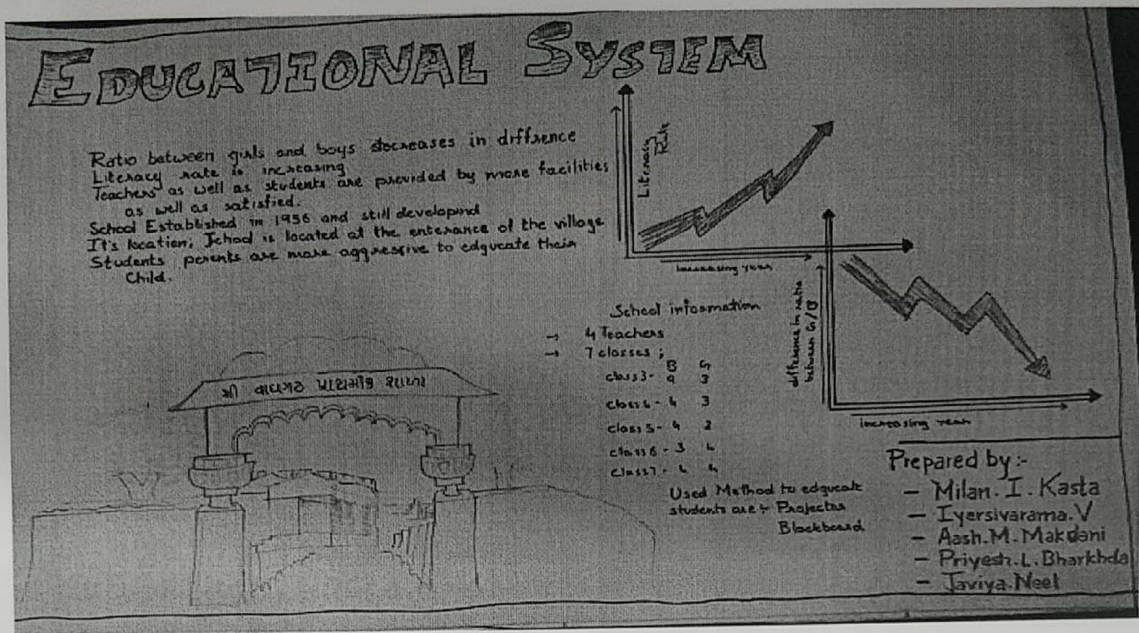 EDUCATIONAL SYSTEM
Ratio between girls and boys decreases in diffrence
Literacy rate is increasing
Teachers as well as students are provided by more facilities
as well as satisfied.
School Established in 1956 and still developind
It's location; School is located at the enterance of the village
Students perents are more aggressive to edgucate their
Child.
શ્રી વાઘગઢ પ્રાથમીક શાળા
Literacy Rate
increasing year
difference in ratio
between G/B
increasing year
School information
→ 4 Teachers
→ 7 classes ;
B G
class3- 9 3
class4- 4 3
class5- 4 2
class6- 3 4
class7- 4 4
Used Method to edgucate
students are :- Projector
Blackboard
Prepared by :-
- Milan. I. Kasta
- Iyersivarama.V
- Aash.M.Makdani
- Priyesh.L.Bharkhda
- Javiya.Neel